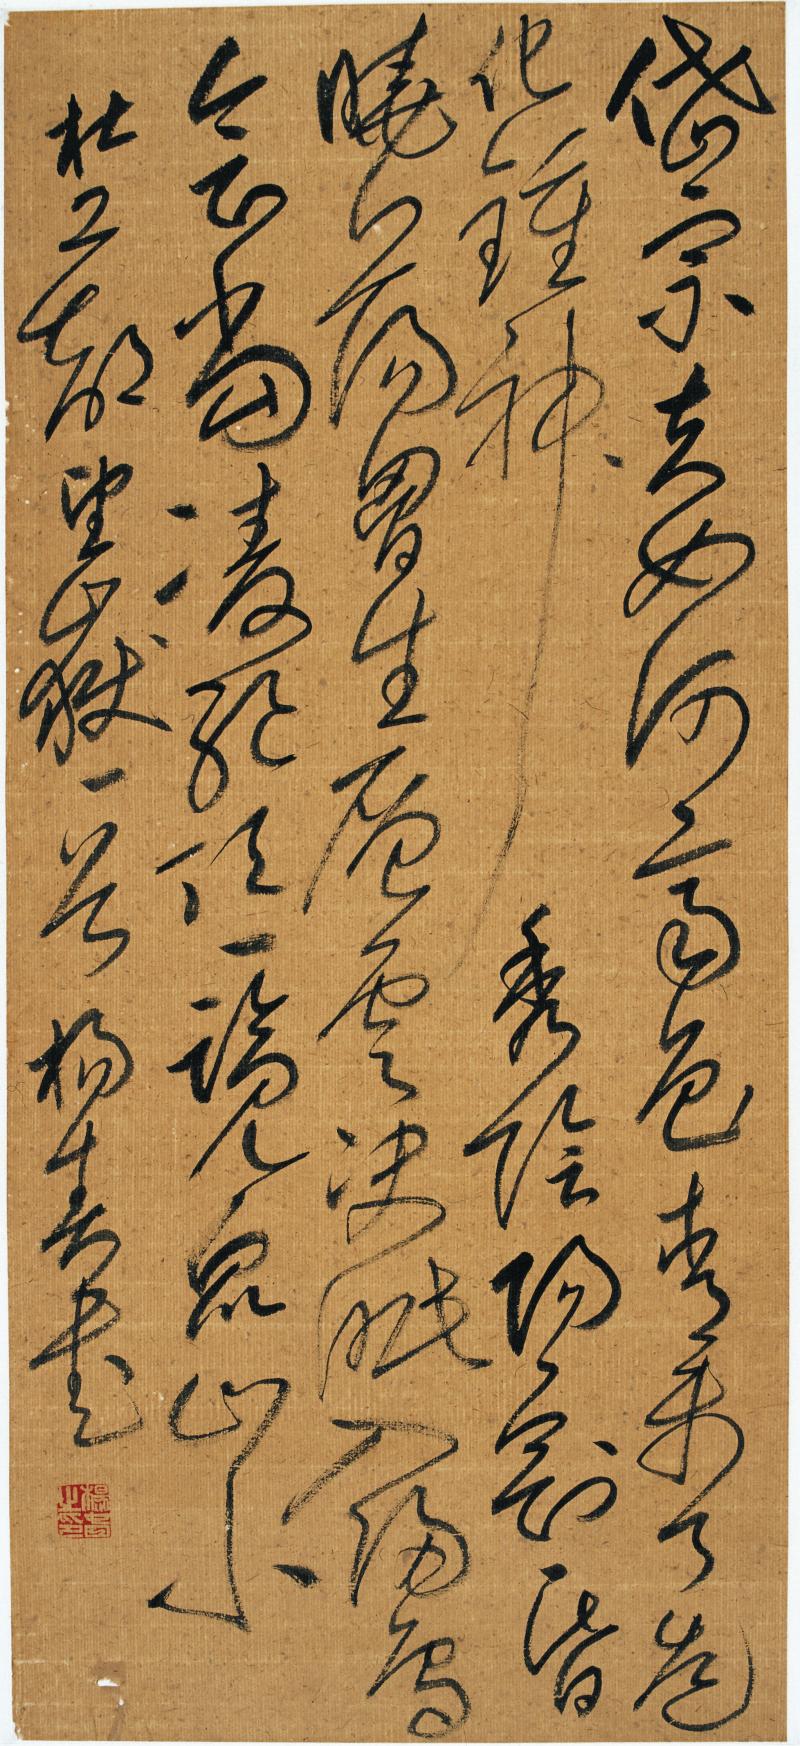 岱宗夫如何齊魯青未了造
化鍾神秀陰陽割昏
曉蕩胸生層雲決眥入歸鳥
會當凌絕頂一覽眾山小
杜工部望嶽一首 楊書